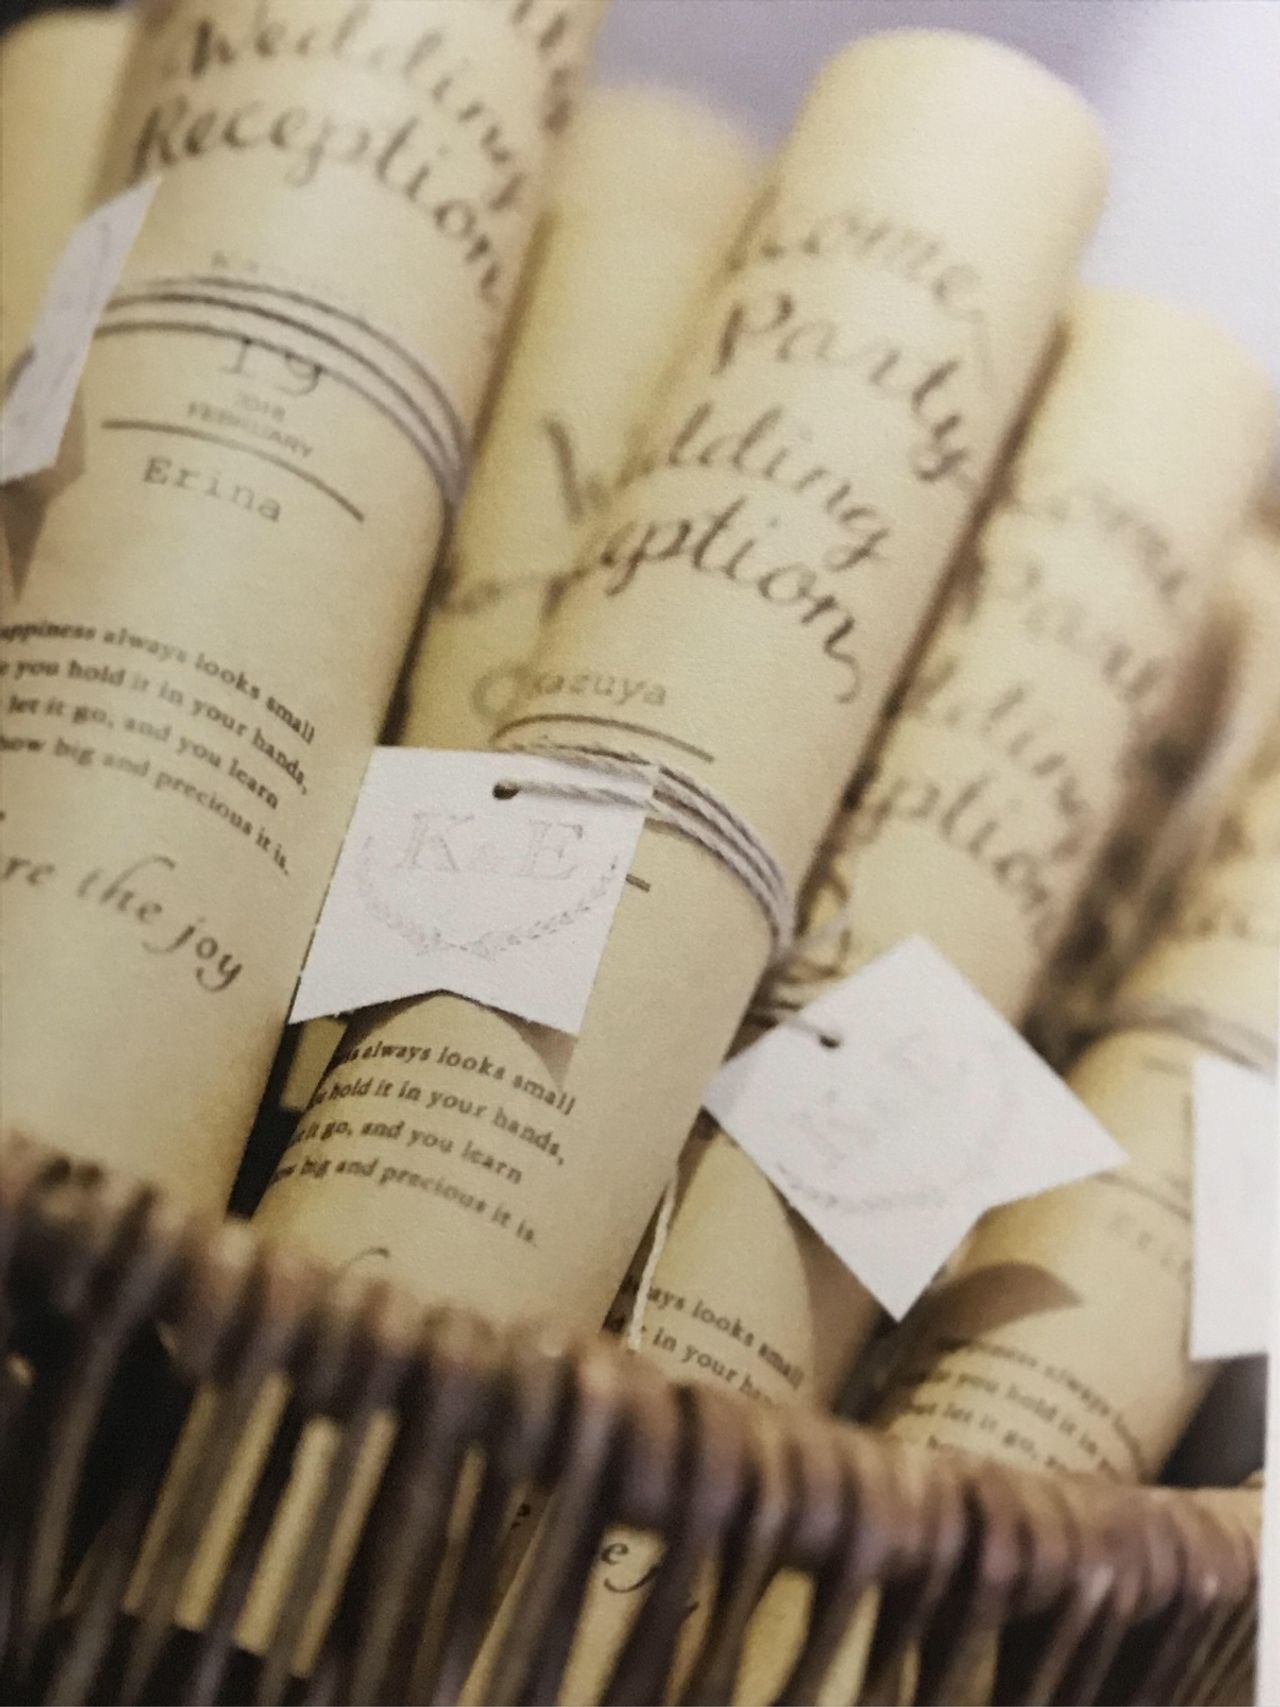 Wedding
Reception
19
2018
FEBRUARY
Erina
appiness always looks small
e you hold it in your hands,
let it go, and you learn
how big and precious it is.
re the joy
come
Party
dding
eption
Kazuya
K&E
s always looks small
hold it in your hands,
it go, and you learn
ow big and precious it is.
Party
dding
eption
ways looks small
it in your han
ppiness always lo
e you hold it in y
but let it go,